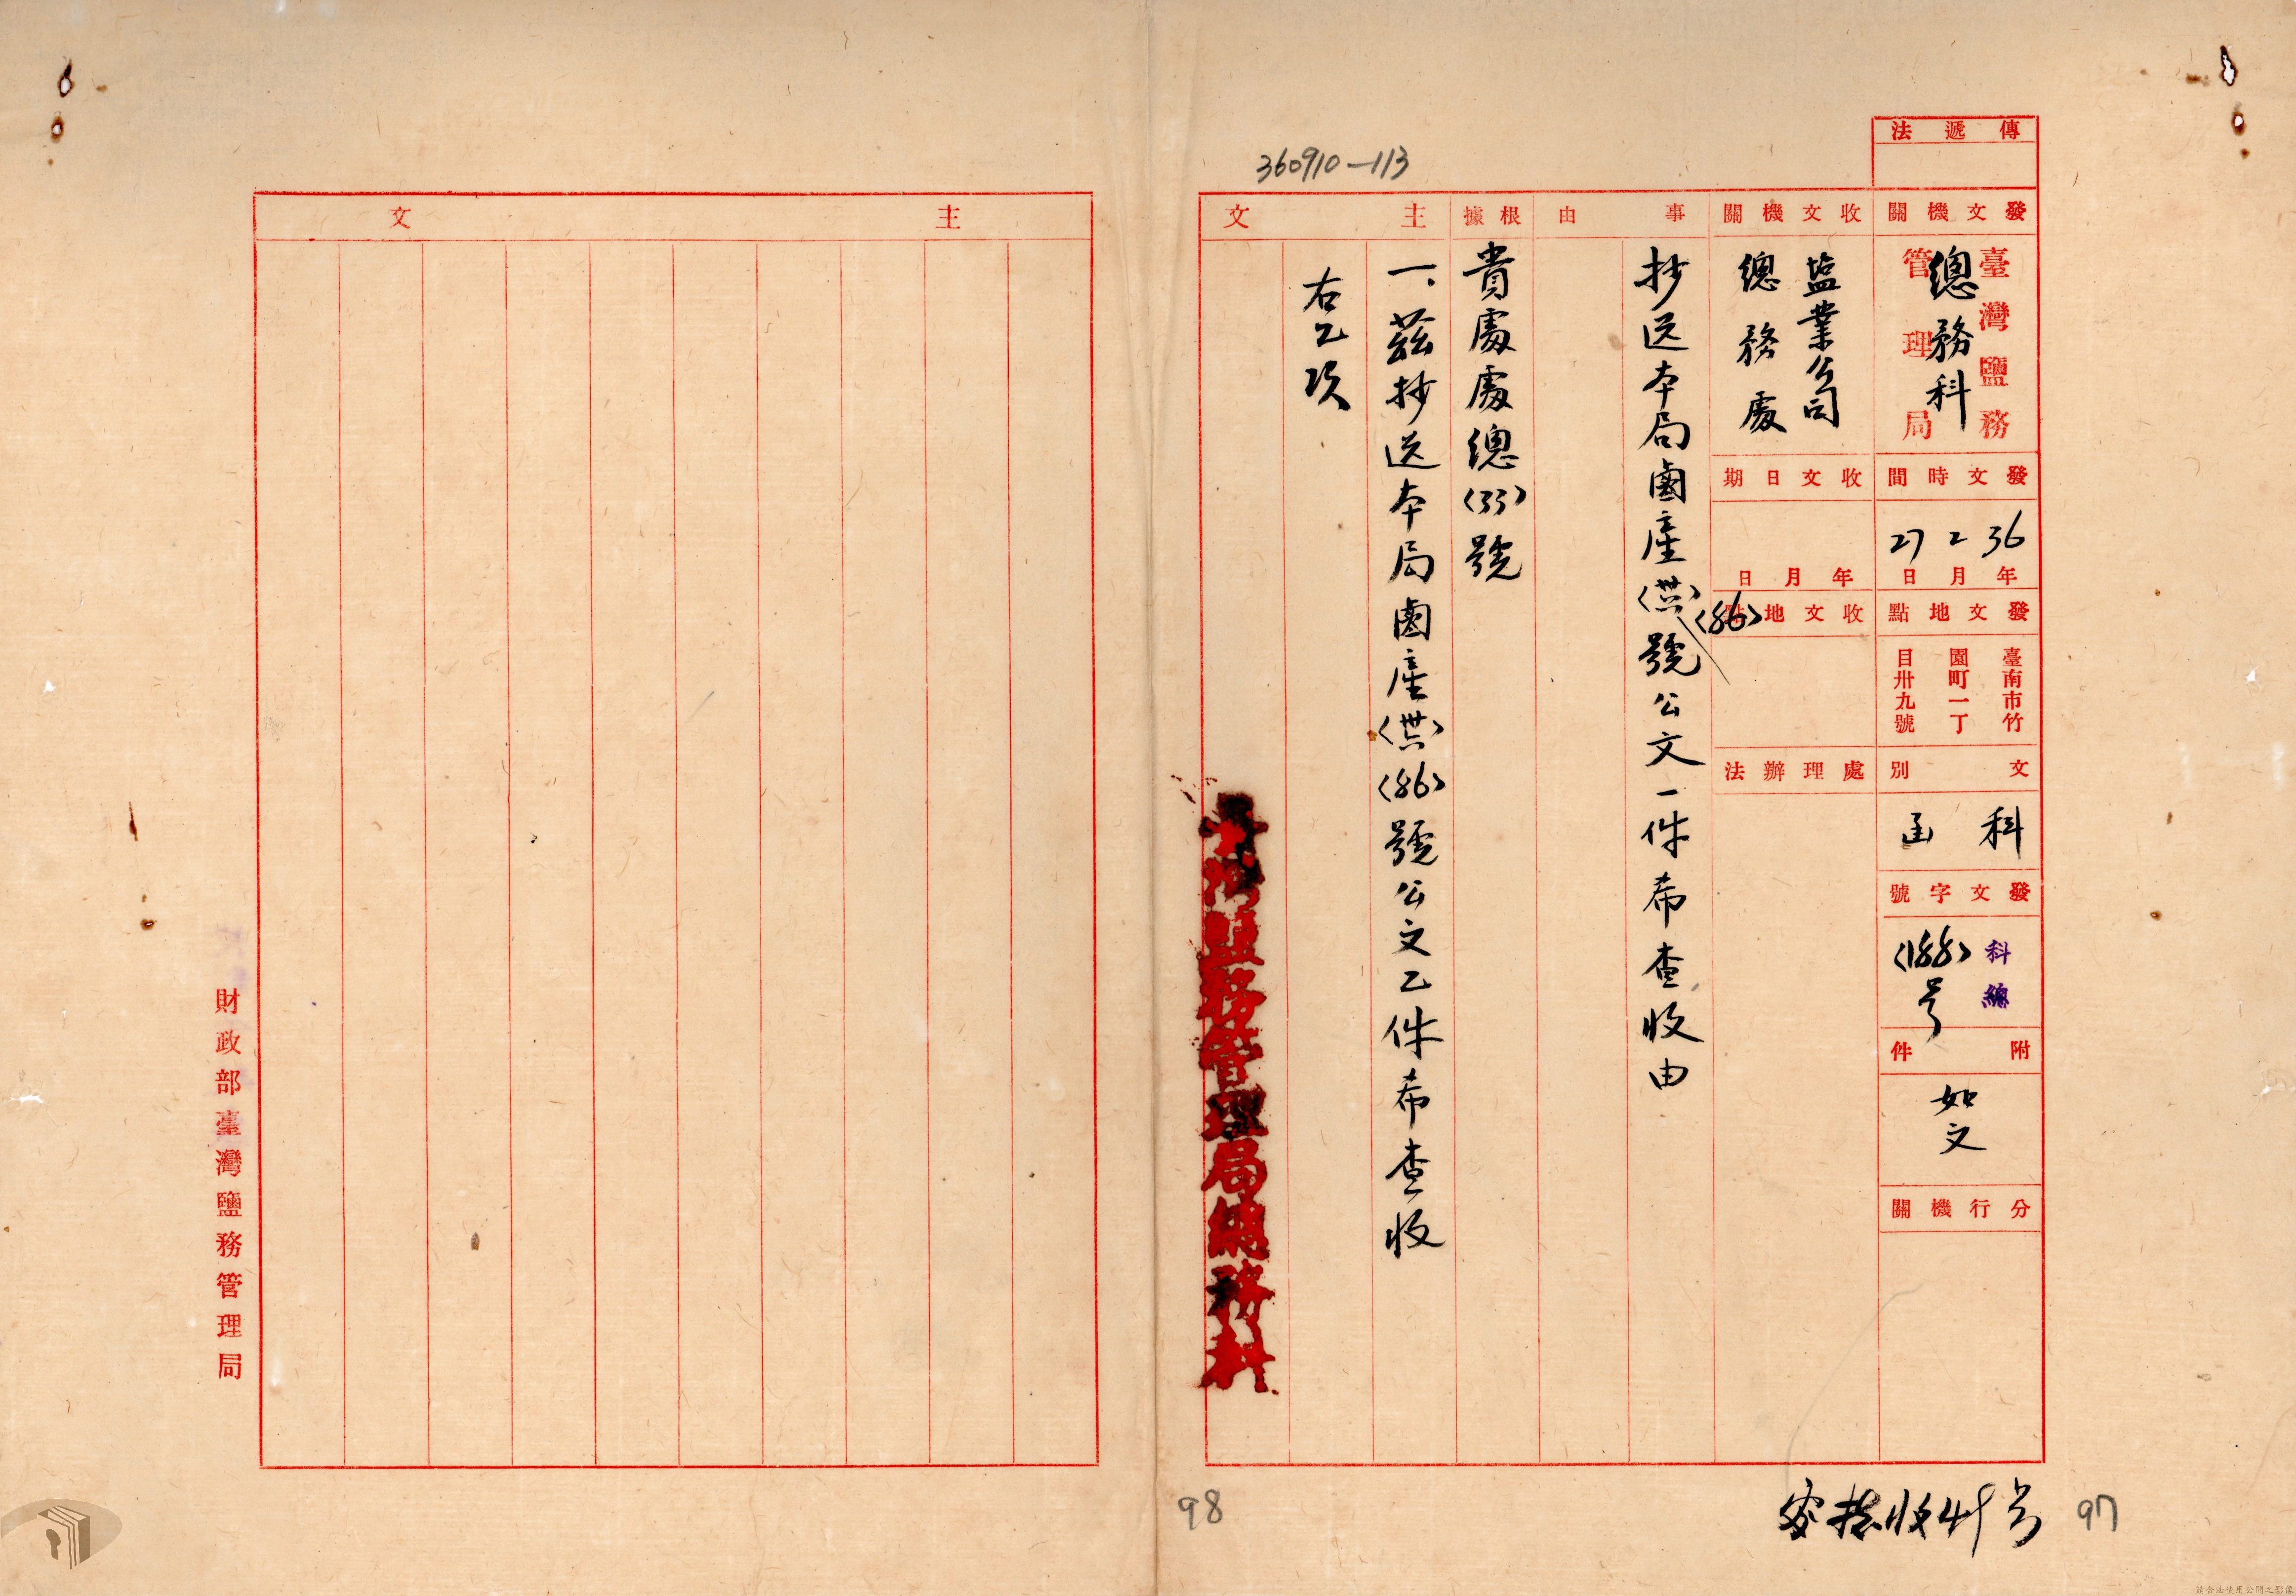 360910—113
傳遞法
發文機關
臺灣鹽務
管理局
總務科
發文時間
36年2月27日
發文地點
臺南市竹
園町一丁
目卅九號
文別
科函
發文字號
科總
〈188〉号
附件
如文
分行機關
收文機關
塩業公司
總務處
收文日期
年月日
收文地點
處理辦法
事由
抄送本局鹵產〈卅六〉〈86〉號公文一件希查收由
根據
貴處處總〈33〉號
主文
一、茲抄送本局鹵產〈卅六〉〈86〉號公文乙件希查收
右乙項
臺灣鹽務管理局總務科
97
98
主文
財政部臺灣鹽務管理局
請合法使用公開之影像